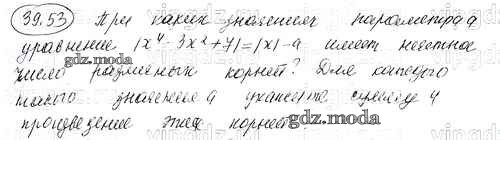 39.53 При каких значениях параметра а
уравнение |x⁴-3x²+7|=|x|-a имеет нечетное
gdz.moda
число различных корней? Для каждого
такого значения а укажите сумму и
произведение этих корней.
gdz.moda